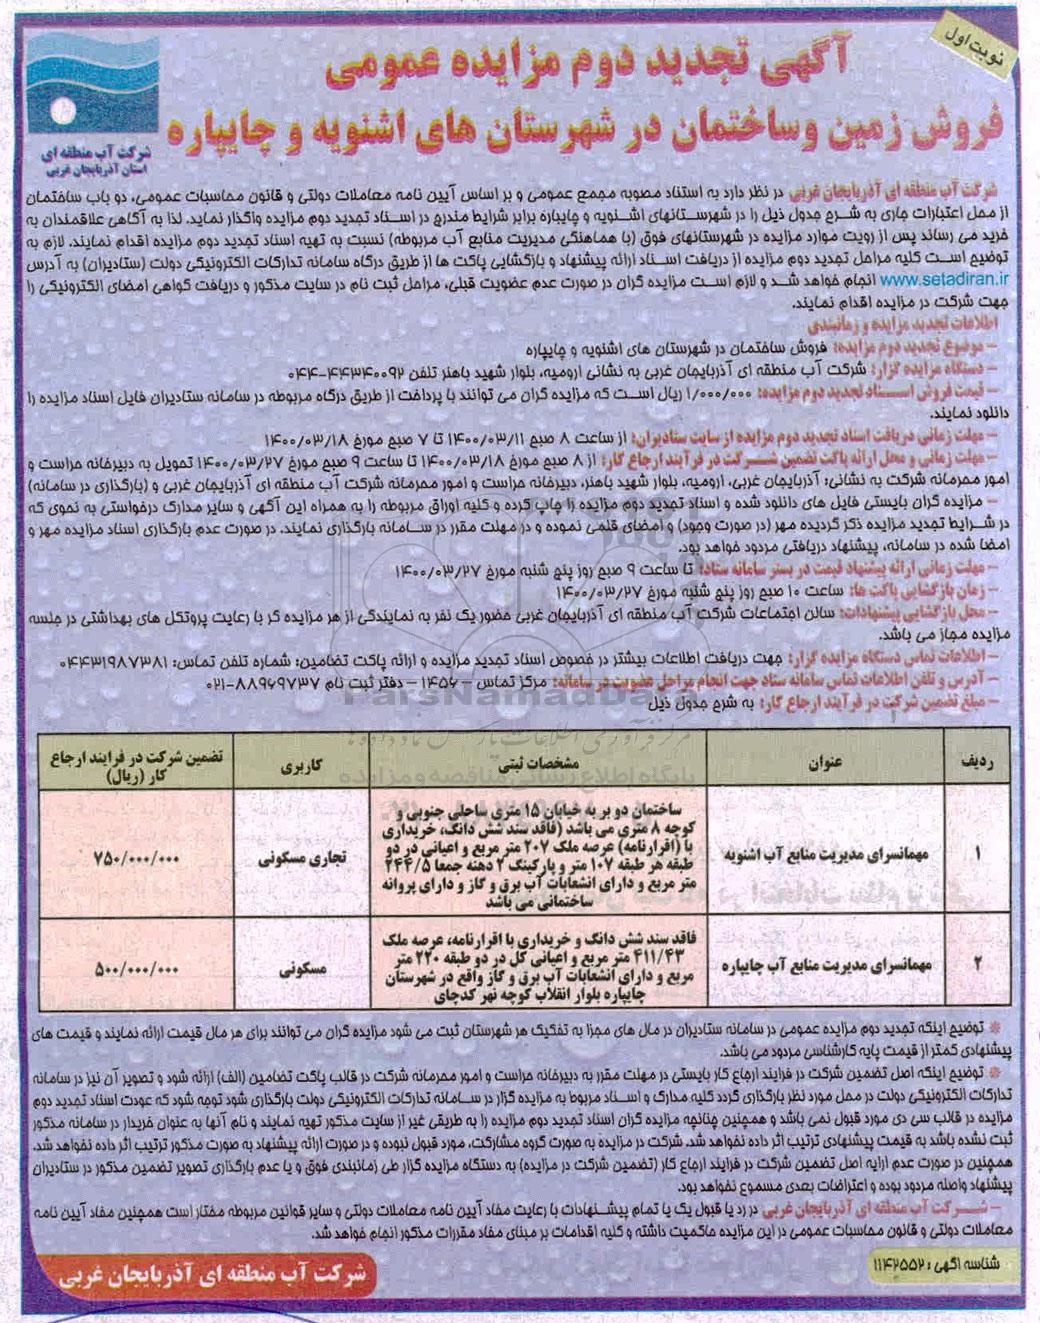 نوبت اول
آگهی تجدید دوم مزایده عمومی
فروش زمین وساختمان در شهرستان های اشنویه و چایپاره
شرکت آب منطقه ای
استان آذربایجان غربی
شرکت آب منطقه ای آذربایجان غربی در نظر دارد به استناد مصوبه مجمع عمومی و بر اساس آیین نامه معاملات دولتی و قانون محاسبات عمومی، دو باب ساختمان
از محل اعتبارات جاری به شرح جدول ذیل را در شهرستانهای اشنویه و چایپاره برابر شرایط مندرج در اسناد تجدید دوم مزایده واگذار نماید. لذا به آگاهی علاقمندان به
خرید می رساند پس از رویت موارد مزایده در شهرستانهای فوق (با هماهنگی مدیریت منابع آب مربوطه) نسبت به تهیه اسناد تجدید دوم مزایده اقدام نمایند. لازم به
توضیح است کلیه مراحل تجدید دوم مزایده از دریافت اسناد ارائه پیشنهاد و بازگشایی پاکت ها از طریق درگاه سامانه تدارکات الکترونیکی دولت (ستادیران) به آدرس
www.setadiran.ir انجام خواهد شد و لازم است مزایده گران در صورت عدم عضویت قبلی، مراحل ثبت نام در سایت مذکور و دریافت گواهی امضای الکترونیکی را
جهت شرکت در مزایده اقدام نمایند.
اطلاعات تجدید مزایده و زمانبندی
– موضوع تجدید دوم مزایده: فروش ساختمان در شهرستان های اشنویه و چایپاره
– دستگاه مزایده گزار: شرکت آب منطقه ای آذربایجان غربی به نشانی ارومیه، بلوار شهید باهنر تلفن ۴۴۳۴۰۰۹۲-۰۴۴
– قیمت فروش اسناد تجدید دوم مزایده: ۱/۰۰۰/۰۰۰ ریال است که مزایده گران می توانند با پرداخت از طریق درگاه مربوطه در سامانه ستادیران فایل اسناد مزایده را
دانلود نمایند.
– مهلت زمانی دریافت اسناد تجدید دوم مزایده از سایت ستادیران: از ساعت ۸ صبح ۱۴۰۰/۰۳/۱۱ تا ۷ صبح مورخ ۱۴۰۰/۰۳/۱۸
– مهلت زمانی و محل ارائه پاکت تضمین شرکت در فرآیند ارجاع کار: از ۸ صبح مورخ ۱۴۰۰/۰۳/۱۸ تا ساعت ۹ صبح مورخ ۱۴۰۰/۰۳/۲۷ تحویل به دبیرخانه حراست و
امور محرمانه شرکت به نشانی: آذربایجان غربی، ارومیه، بلوار شهید باهنر، دبیرخانه حراست و امور محرمانه شرکت آب منطقه ای آذربایجان غربی و (بارگذاری در سامانه)
– مزایده گران بایستی فایل های دانلود شده و اسناد تجدید دوم مزایده را چاپ کرده و کلیه اوراق مربوطه را به همراه این آگهی و سایر مدارک درخواستی به نحوی که
در شرایط تجدید مزایده ذکر گردیده مهر (در صورت وجود) و امضای قلمی نموده و در مهلت مقرر در سامانه بارگذاری نمایند. در صورت عدم بارگذاری اسناد مزایده مهر و
امضا شده در سامانه، پیشنهاد دریافتی مردود خواهد بود.
– مهلت زمانی ارائه پیشنهاد قیمت در بستر سامانه ستاد: تا ساعت ۹ صبح روز پنج شنبه مورخ ۱۴۰۰/۰۳/۲۷
– زمان بازگشایی پاکت ها: ساعت ۱۰ صبح روز پنج شنبه مورخ ۱۴۰۰/۰۳/۲۷
– محل بازگشایی پیشنهادات: سالن اجتماعات شرکت آب منطقه ای آذربایجان غربی حضور یک نفر به نمایندگی از هر مزایده گر با رعایت پروتکل های بهداشتی در جلسه
مزایده مجاز می باشد.
– اطلاعات تماس دستگاه مزایده گزار: جهت دریافت اطلاعات بیشتر در خصوص اسناد تجدید مزایده و ارائه پاکت تضامین: شماره تلفن تماس: ۰۴۴۳۱۹۸۷۳۸۱
– آدرس و تلفن اطلاعات تماس سامانه ستاد جهت انجام مراحل عضویت در سامانه: مرکز تماس – ۱۴۵۶ – دفتر ثبت نام ۸۸۹۶۹۷۳۷-۰۲۱
– مبلغ تضمین شرکت در فرآیند ارجاع کار: به شرح جدول ذیل
ParsNamadData
پایگاه اطلاع رسانی مناقصه و مزایده
ردیف
عنوان
مشخصات ثبتی
کاربری
تضمین شرکت در فرایند ارجاع
کار (ریال)
۱
مهمانسرای مدیریت منابع آب اشنویه
ساختمان دو بر به خیابان ۱۵ متری ساحلی جنوبی و
کوچه ۸ متری می باشد (فاقد سند شش دانگ، خریداری
با (اقرارنامه) عرصه ملک ۲۰۷ متر مربع و اعیانی در دو
طبقه هر طبقه ۱۰۷ متر و پارکینگ ۲ دهنه جمعا ۲۴۴/۵
متر مربع و دارای انشعابات آب برق و گاز و دارای پروانه
ساختمانی می باشد
تجاری مسکونی
۷۵۰/۰۰۰/۰۰۰
۲
مهمانسرای مدیریت منابع آب چایپاره
فاقد سند شش دانگ و خریداری با اقرارنامه، عرصه ملک
۴۱۱/۴۳ متر مربع و اعیانی کل در دو طبقه ۲۲۰ متر
مربع و دارای انشعابات آب برق و گاز واقع در شهرستان
چایپاره بلوار انقلاب کوچه نهر کدچای
مسکونی
۵۰۰/۰۰۰/۰۰۰
* توضیح اینکه تجدید دوم مزایده عمومی در سامانه ستادیران در مال های مجزا به تفکیک هر شهرستان ثبت می شود مزایده گران می توانند برای هر مال قیمت ارائه نمایند و قیمت های
پیشنهادی کمتر از قیمت پایه کارشناسی مردود می باشد.
* توضیح اینکه اصل تضمین شرکت در فرایند ارجاع کار بایستی در مهلت مقرر به دبیرخانه حراست و امور محرمانه شرکت در قالب پاکت تضامین (الف) ارائه شود و تصویر آن نیز در سامانه
تدارکات الکترونیکی دولت در محل مورد نظر بارگذاری گردد کلیه مدارک و اسناد مربوط به مزایده گزار در سامانه تدارکات الکترونیکی دولت بارگذاری شود توجه شود که عودت اسناد تجدید دوم
مزایده در قالب سی دی مورد قبول نمی باشد و همچنین چنانچه مزایده گران اسناد تجدید دوم مزایده را به طریقی غیر از سایت مذکور تهیه نمایند و نام آنها به عنوان خریدار در سامانه مذکور
ثبت نشده باشد به قیمت پیشنهادی ترتیب اثر داده نخواهد شد. شرکت در مزایده به صورت گروه مشارکت، مورد قبول نبوده و در صورت ارائه پیشنهاد به صورت مذکور ترتیب اثر داده نخواهد شد.
همچنین در صورت عدم ارایه اصل تضمین شرکت در فرایند ارجاع کار (تضمین شرکت در مزایده) به دستگاه مزایده گزار طی زمانبندی فوق و یا عدم بارگذاری تصویر تضمین مذکور در ستادیران
پیشنهاد واصله مردود بوده و اعتراضات بعدی مسموع نخواهد بود.
– شرکت آب منطقه ای آذربایجان غربی در رد یا قبول یک یا تمام پیشنهادات با رعایت مفاد آیین نامه معاملات دولتی و سایر قوانین مربوطه مختار است همچنین مفاد آیین نامه
معاملات دولتی و قانون محاسبات عمومی در این مزایده حاکمیت داشته و کلیه اقدامات بر مبنای مفاد مقررات مذکور انجام خواهد شد.
شناسه آگهی : ۱۱۴۲۵۵۲
شرکت آب منطقه ای آذربایجان غربی